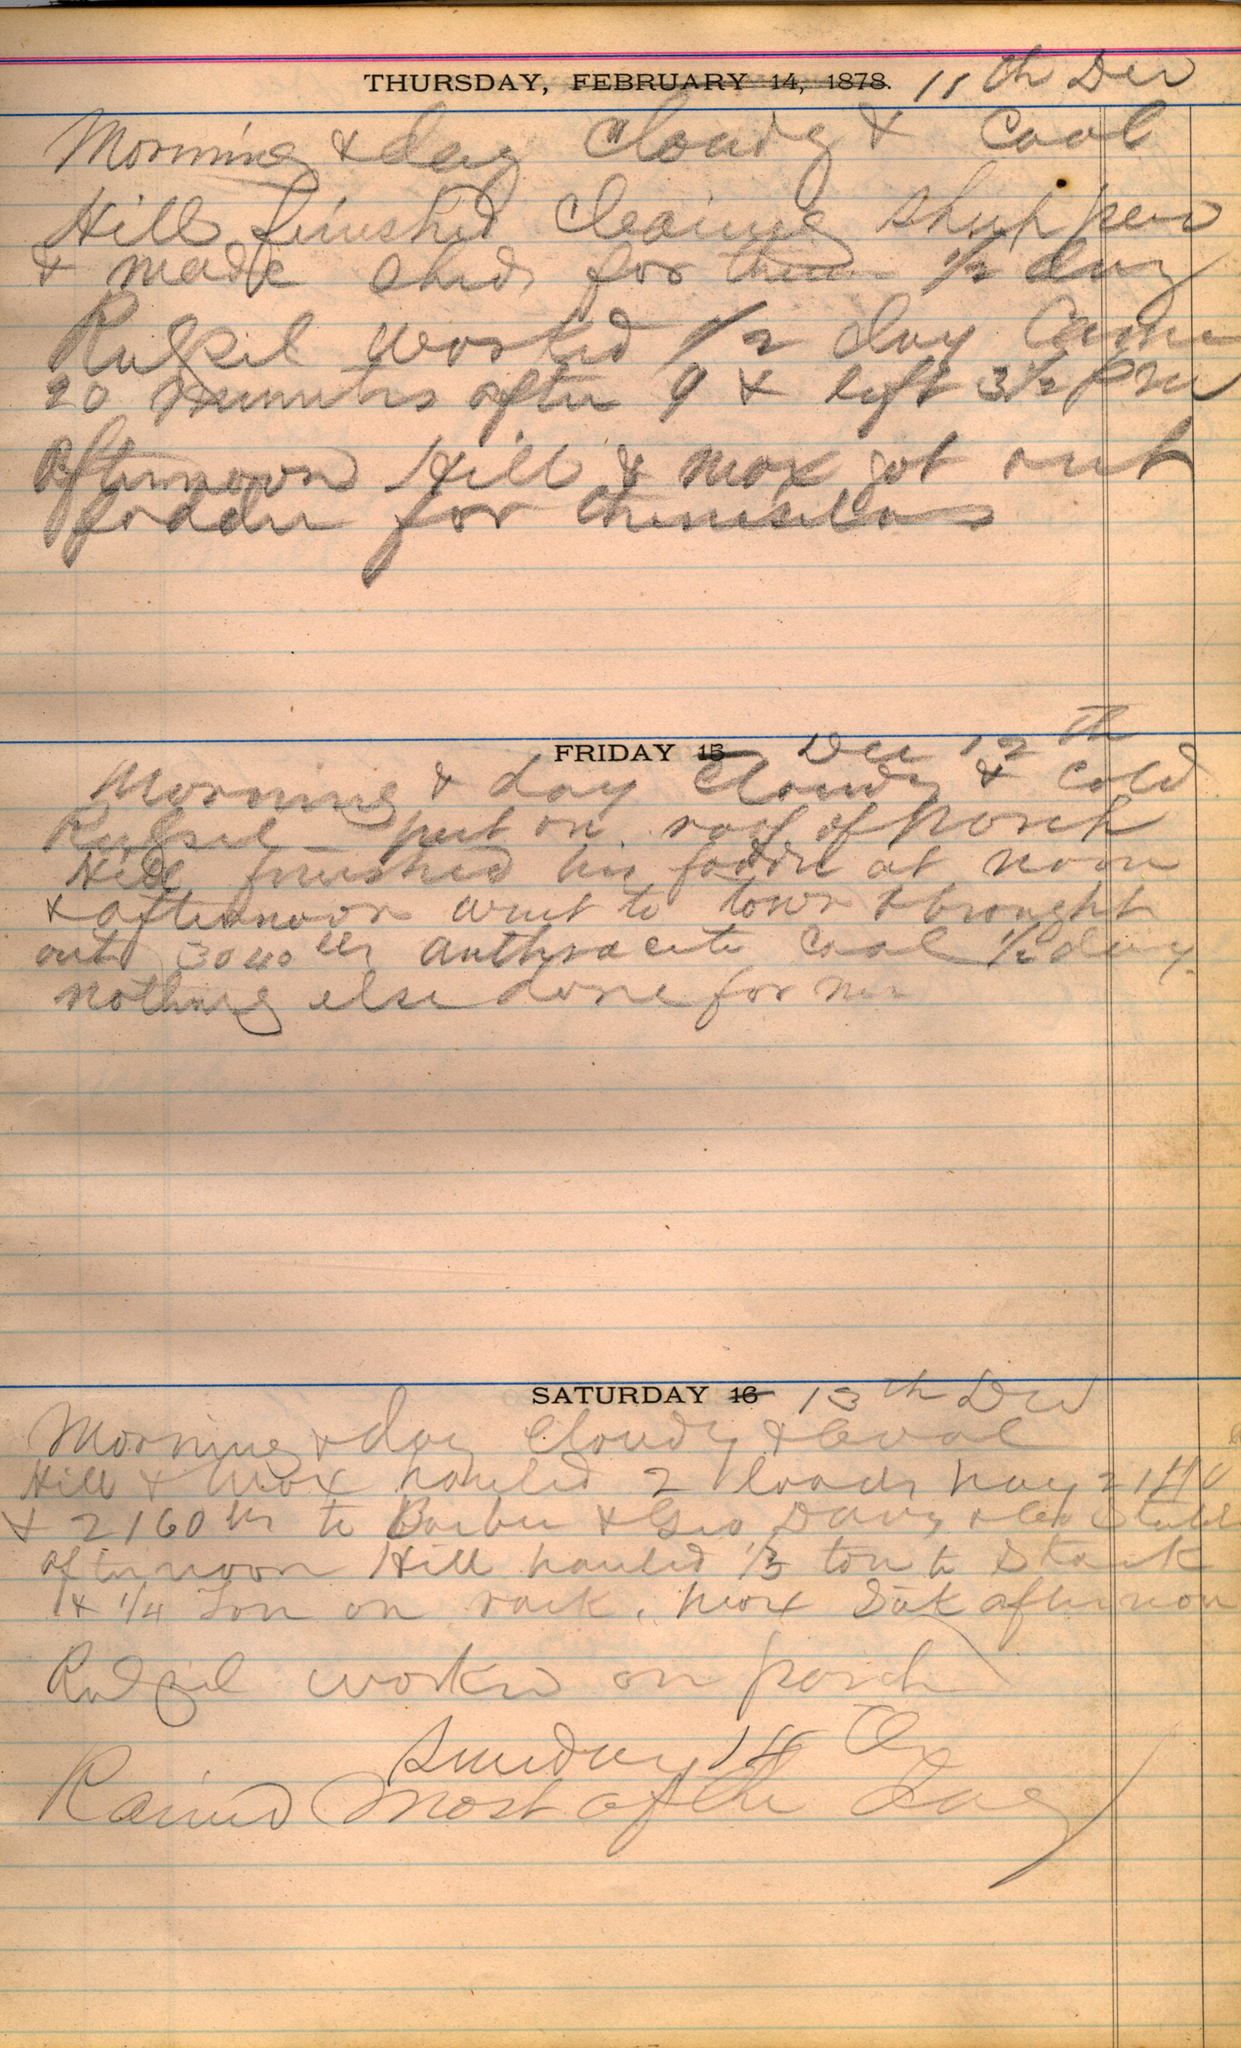 THURSDAY, FEBRUARY 14, 1878. 11th Dec
Morning & day Cloudy & Cool
Hill finished cleaning sheep pen
& made shed for them 1/2 day
worked 1/2 day Came
20 minutes after 9 & left 3 1/2 PM
afternoon Hill & Max got out
fodder for themselves
FRIDAY 15 Dec 12th
Morning & day Cloudy & Cold
put on roof of porch
Hill finished his fodder at noon
& afternoon went to town & brought
out 3040 lbs anthracite Coal 1/2 day
nothing else done for me
SATURDAY 16 13th Dec
Morning & day Cloudy & Cool
Hill & Max hauled 2 loads hay
& 2160 lbs to & Geo
afternoon Hill hauled 1/3 ton to Stack
& 1/4 Ton on rack. Max Sick afternoon
worked on porch
Sunday 14th
Rained most of the day